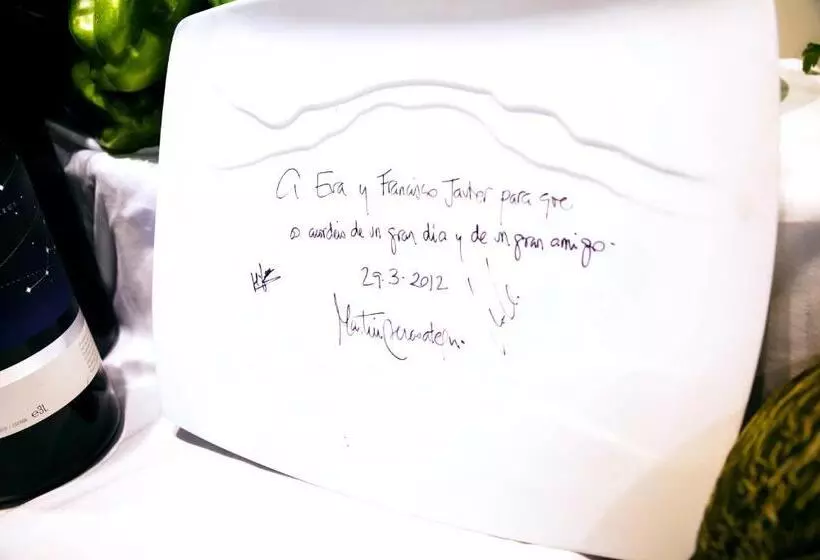 A Eva y Francisco Javier para que
os acordéis de un gran día y de un gran amigo.
29.3.2012
Martín Berasategui
e3L